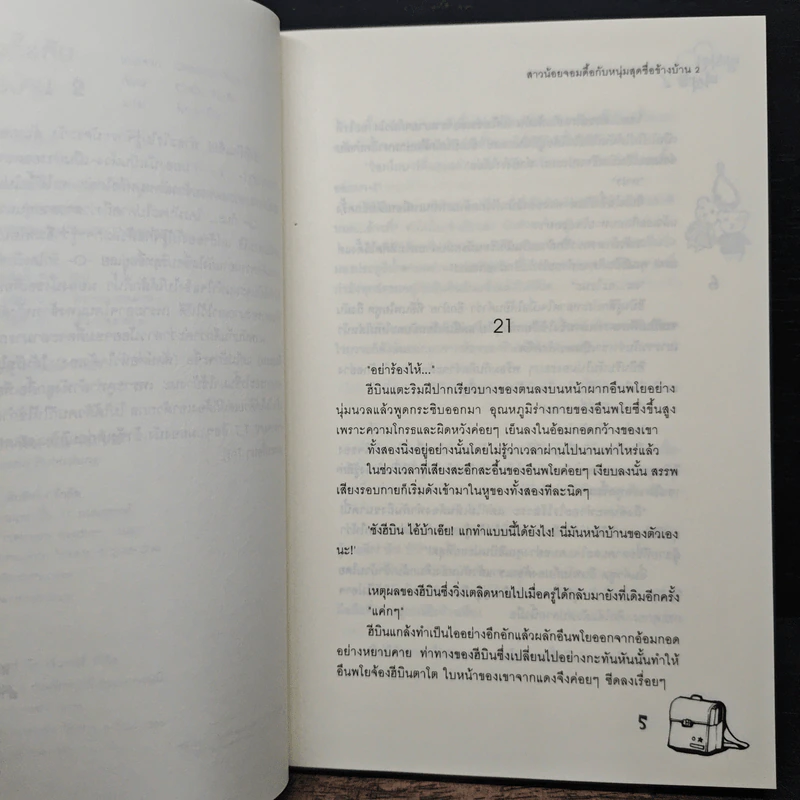 สาวน้อยจอมดื้อกับหนุ่มสุดซื่อข้างบ้าน 2
21
"อย่าร้องไห้..."
ฮีบินแตะริมฝีปากเรียวบางของตนลงบนหน้าผากอึนพโยอย่าง
นุ่มนวลแล้วพูดกระซิบออกมา อุณหภูมิร่างกายของอึนพโยซึ่งขึ้นสูง
เพราะความโกรธและผิดหวังค่อยๆ เย็นลงในอ้อมกอดกว้างของเขา
ทั้งสองนิ่งอยู่อย่างนั้นโดยไม่รู้ว่าเวลาผ่านไปนานเท่าไหร่แล้ว
ในช่วงเวลาที่เสียงสะอึกสะอื้นของอึนพโยค่อยๆ เงียบลงนั้น สรรพ
เสียงรอบกายก็เริ่มดังเข้ามาในหูของทั้งสองทีละนิดๆ
'ชังฮีบิน ไอ้บ้าเอ๊ย! แกทำแบบนี้ได้ยังไง! นี่มันหน้าบ้านของตัวเอง
นะ!'
เหตุผลของฮีบินซึ่งวิ่งเตลิดหายไปเมื่อครู่ได้กลับมายังที่เดิมอีกครั้ง
"แค่กๆ"
ฮีบินแกล้งทำเป็นไออย่างอึกอักแล้วผลักอึนพโยออกจากอ้อมกอด
อย่างหยาบคาย ท่าทางของฮีบินซึ่งเปลี่ยนไปอย่างกะทันหันนั้นทำให้
อึนพโยจ้องฮีบินตาโต ใบหน้าของเขาจากแดงจึงค่อยๆ ซีดลงเรื่อยๆ
5